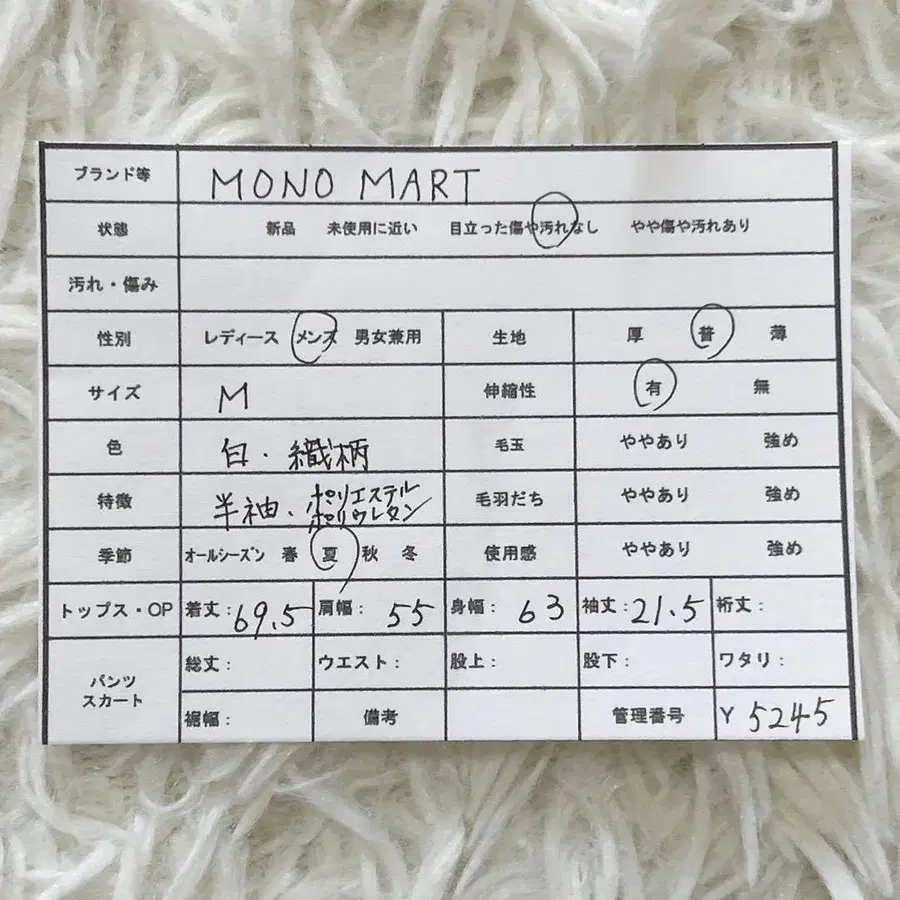 ブランド等 MONO MART
状態 新品 未使用に近い 目立った傷や汚れなし やや傷や汚れあり
汚れ・傷み
性別 レディース メンズ 男女兼用 生地 厚 普 薄
サイズ M 伸縮性 有 無
色 白・織柄 毛玉 ややあり 強め
特徴 半袖、ポリエステル 毛羽だち ややあり 強め
ポリウレタン
季節 オールシーズン 春 夏 秋 冬 使用感 ややあり 強め
トップス・OP 着丈:69.5 肩幅:55 身幅:63 袖丈:21.5 裄丈:
パンツ スカート 総丈: ウエスト: 股上: 股下: ワタリ:
裾幅: 備考 管理番号 Y 5245